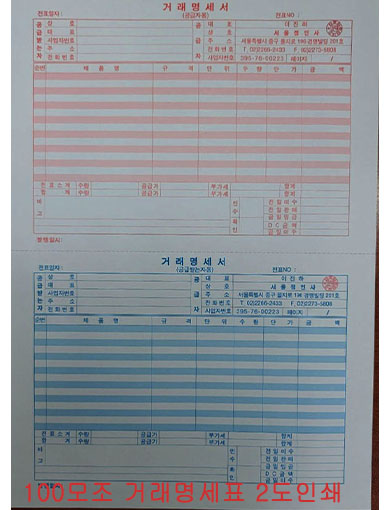 거 래 명 세 서
전표일자 : (공급자용) 전표NO :
공 상 호 공 대 표 이 진 하
급 대 표 급 상 호 서 울 정 판 사
받 사업자번호 자 주 소 서울특별시 중구 을지로 136 경영빌딩 201호
는 주 소 전 화 번 호 T. 02)2266-2433 F. 02)2273-8608
자 전 화 번 호 사업자번호 395-76-00223 페이지 /
순번 제 품 명 규 격 단 위 수 량 단 가 금 액
전 표 소 계 수량 공급가 부가세 합계
합 계 수량 공급가 부가세 합계
비 고 인 수 확 인 전 일 미 수
전 일 판 매
금 일 입 금
D C 금 액
금 일 미 수
발행일시:
거 래 명 세 서
전표일자 : (공급받는자용) 전표NO :
공 상 호 공 대 표 이 진 하
급 대 표 급 상 호
받 사업자번호 주 소 서울특별시 중구 을지로 136 경영빌딩 201호
는 주 소 전 화 번 호 T. 02)2266-2433 F. 02)2273-8608
자 전 화 번 호 자 사업자번호 395-76-00223 페이지 /
순번 제 품 명 규 격 단 위 수 량 단 가 금 액
전 표 소 계 수량 공급가 부가세 합계
합 계 수량 공급가 부가세 합계
비 고 인 수 확 인 전 일 미 수
전 일 판 매
금 일 입 금
D C 금 액
금 일 미 수
100모조 거래명세표 2도인쇄